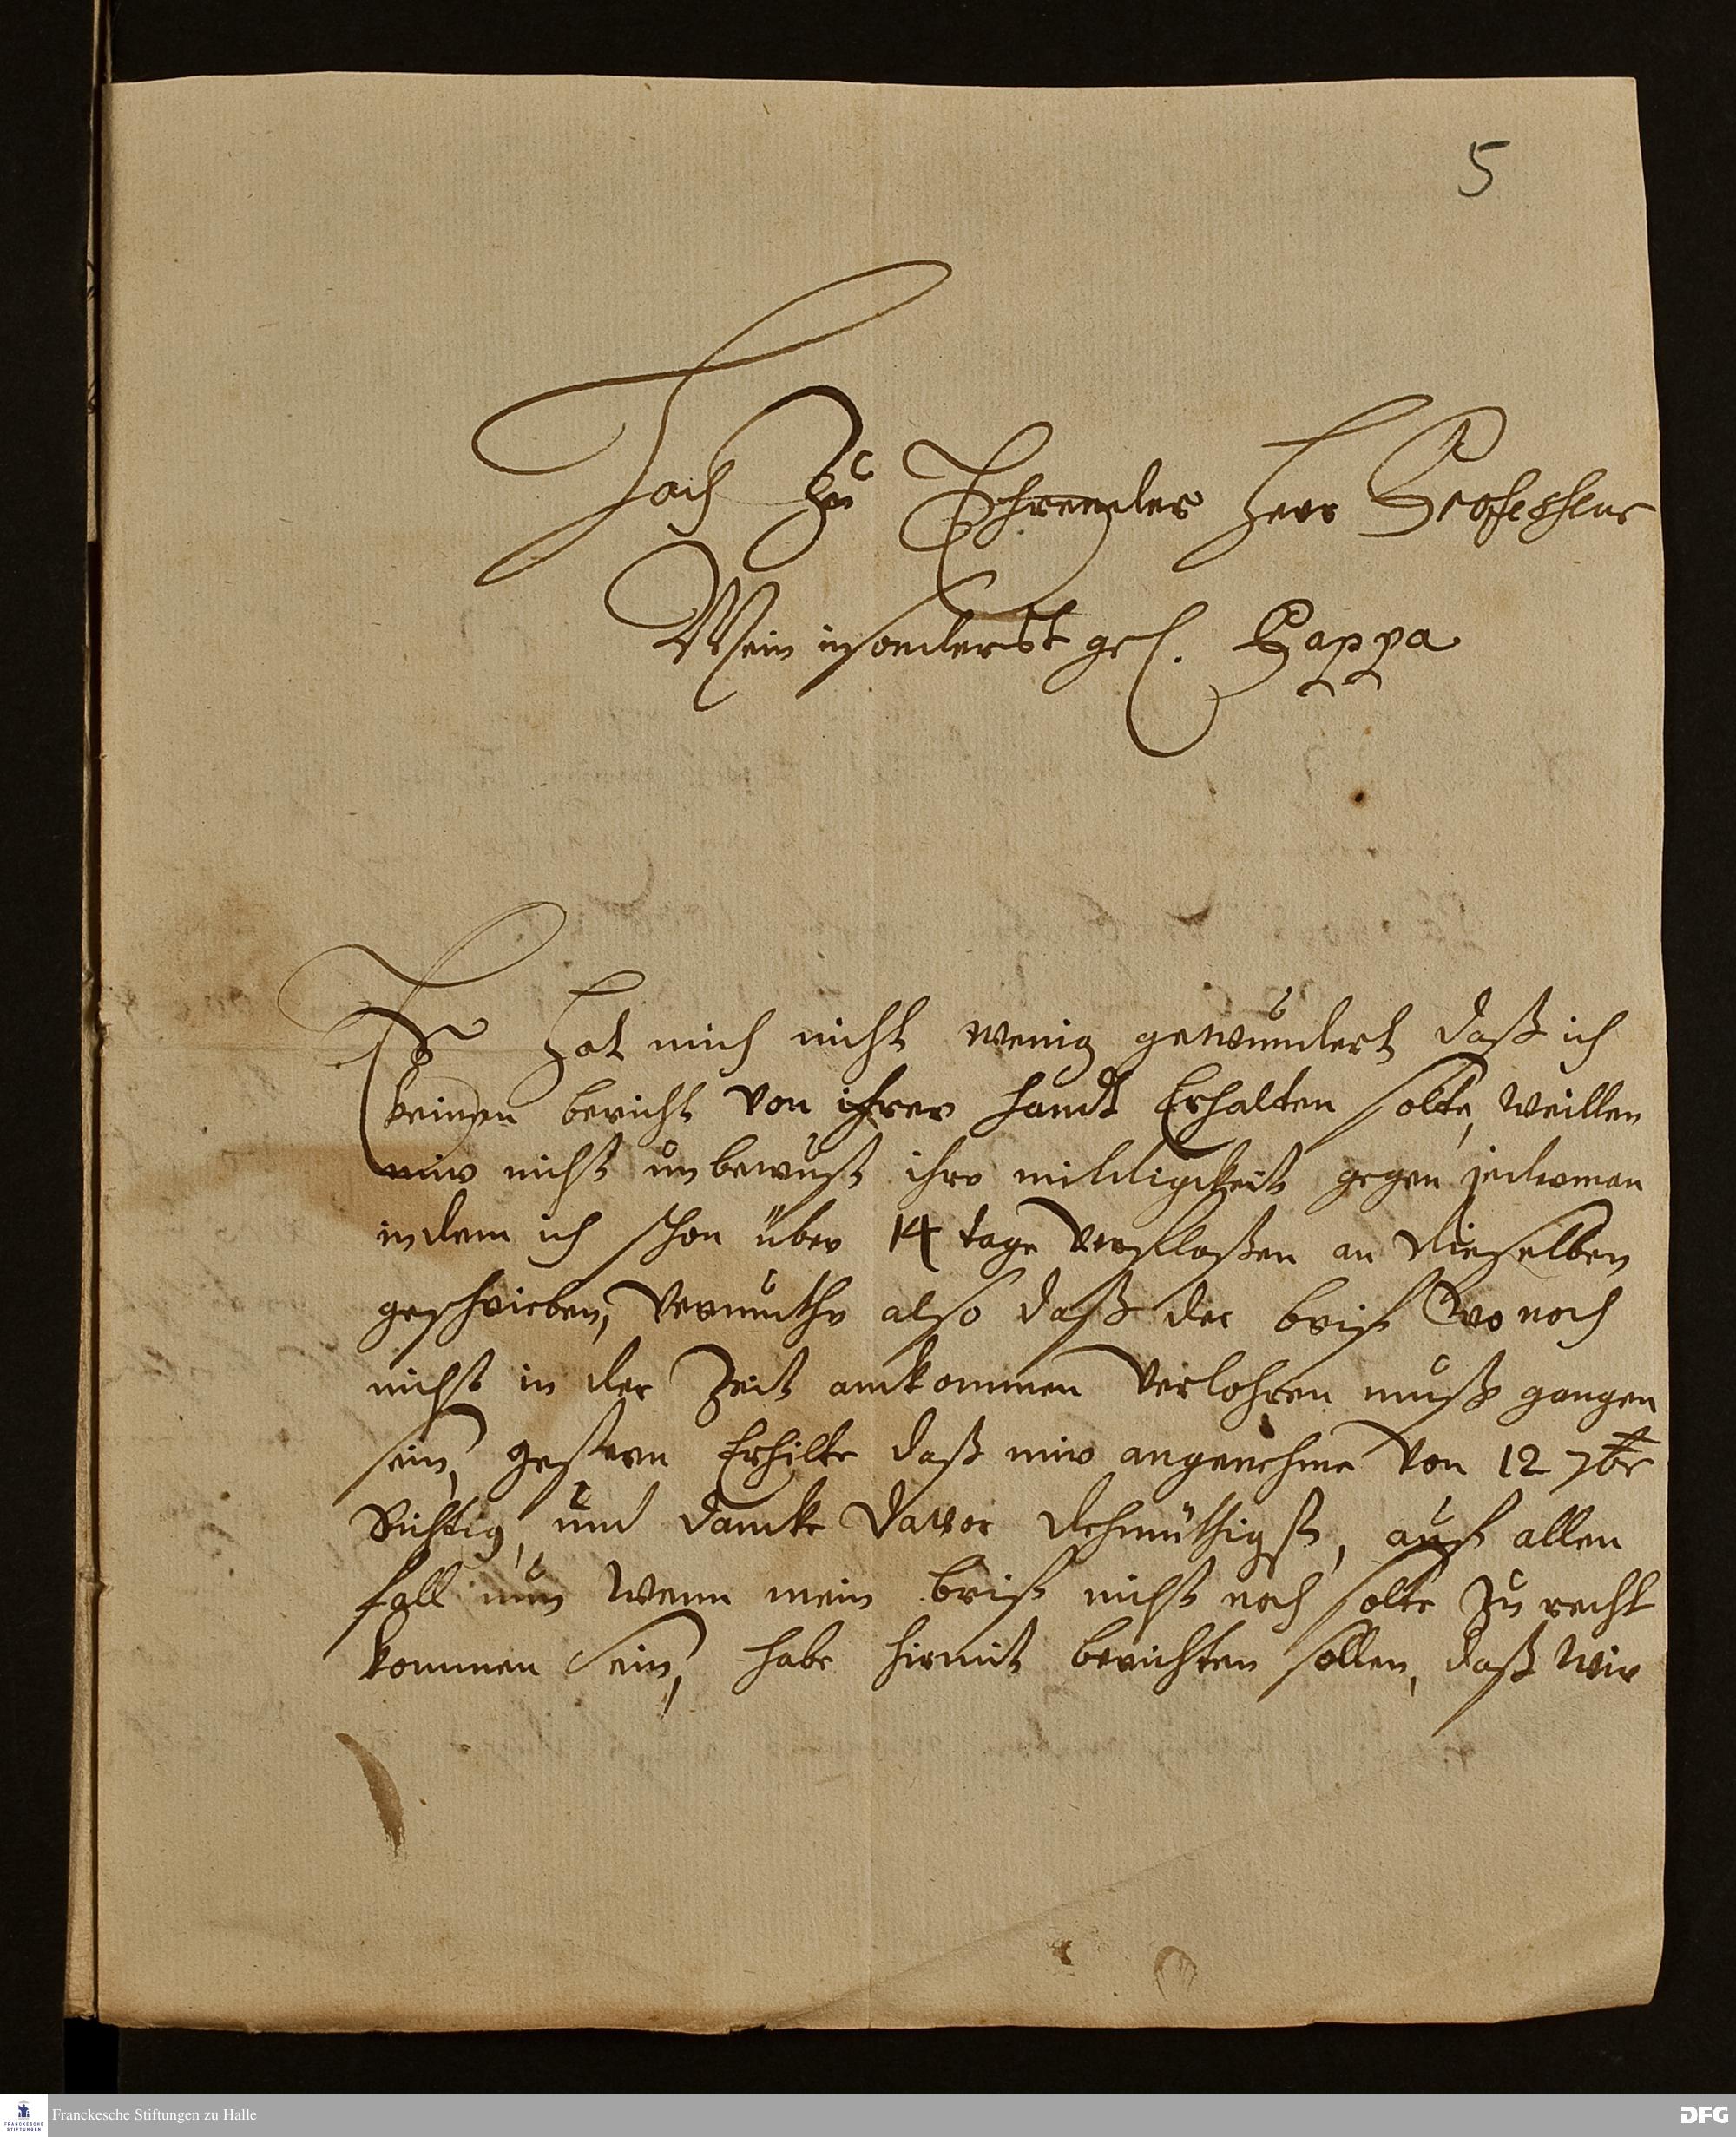 5
Hoch Zu Ehrender Herr Professeur
Mein insonderst gel. Pappa
Es hat mich nicht wenig gewundert daß ich
keinen bericht von ihrer handt Erhalten solte, weillen
mir nicht unbewust ihre mildigkeit gegen jederman
indem ich schon über 14 tage verflossen an dieselben
geschrieben, vermuthe also daß der brif wo noch
nicht in der Zeit ankommen verlohren muß gangen
sein, gestern Erhilte daß mir angenehme von 12 7br
Richtig, und dancke davor dehmüthigst, auf allen
fall nun wenn mein brif nicht noch solte zu recht
kommen sein, habe hirmit berichten sollen, daß wir
Franckesche Stiftungen zu Halle
FRANCKESCHE
STIFTUNGEN
DFG